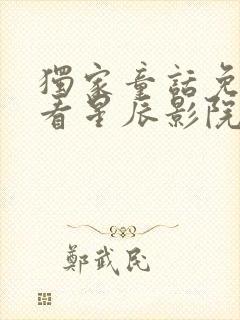 獨家童話免
看星辰影院
鄭武民